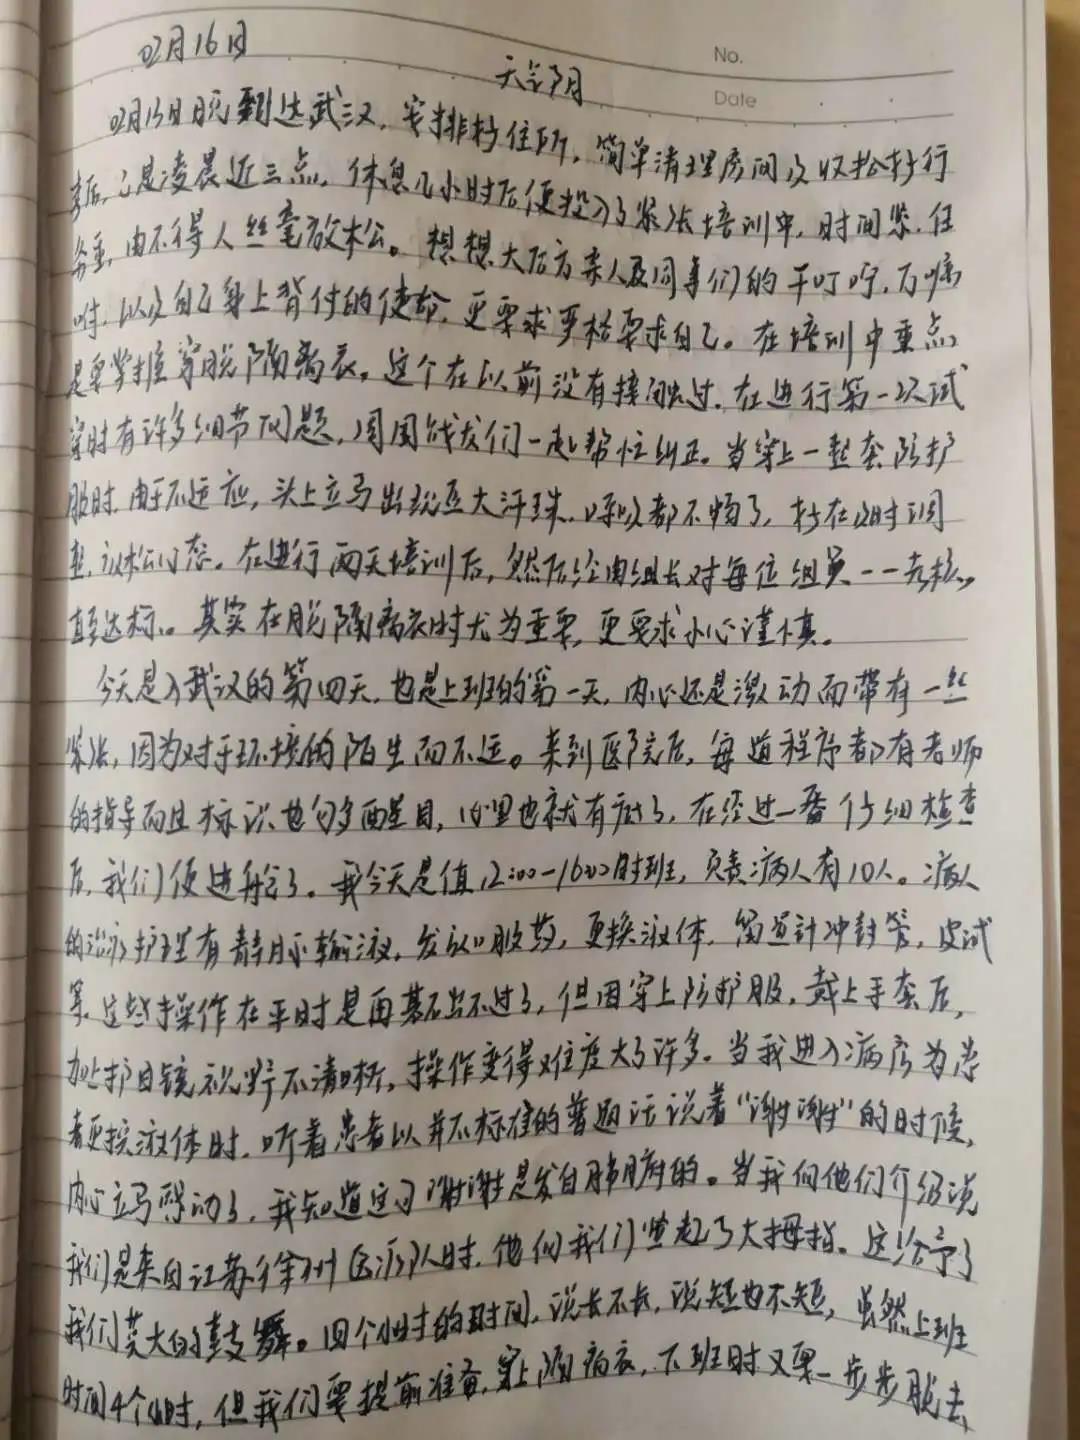 02月16日
No.
天气阴
Date
02月13日晚到达武汉,安排好住所,简单清理房间及收拾好行
李后,已是凌晨近三点,休息几小时后便投入了紧张培训中,时间紧,任
务重,由不得人丝毫放松。想想大后方亲人及同事们的千叮咛,万嘱
咐,以及自己身上背付的使命,更要求严格要求自己。在培训中重点
是要掌握穿脱隔离衣,这个在以前没有接触过,在进行第一次试
穿时有许多细节问题,周围战友们一起帮忙纠正。当穿上一整套防护
服时,由于不适应,头上立马出现豆大汗珠,呼吸都不畅了,好在及时调
整,放松心态。在进行两天培训后,然后经由组长对每位组员一一考核,
直至达标。其实在脱隔离衣时尤为重要,更要求小心谨慎。
今天是入武汉的第四天,也是上班的第一天,内心还是激动而带有一丝
紧张,因为对于环境的陌生而不适。来到医院后,每道程序都有老师
的指导而且标识也够多醒目,心里也就有底了,在经过一番仔细检查
后,我们便进舱了。我今天是值12:00-16:00时班,负责病人有10人。病人
的治疗护理有静脉输液,发放口服药,更换液体,留置针冲封管,皮试
等,这些操作在平时是再基础不过了,但因穿上防护服,戴上手套后,
加上护目镜视野不清晰,操作变得难度大了许多。当我进入病房为患
者更换液体时,听着患者以并不标准的普通话说着“谢谢”的时候,
内心立马感动了,我知道这句谢谢是发自肺腑的。当我向他们介绍说
我们是来自江苏徐州医疗队时,他们向我们竖起了大拇指。这给予了
我们莫大的鼓舞。四个小时的时间,说长不长,说短也不短,虽然上班
时间4个小时,但我们要提前准备,穿上隔离衣,下班时又要一步步脱去